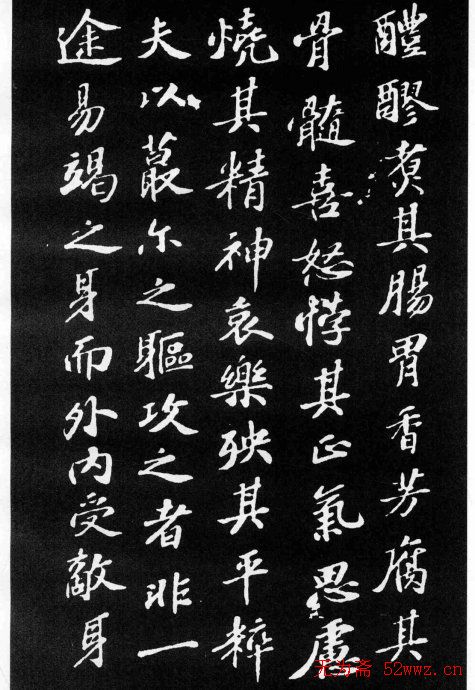 醴醪煮其腸胃香芳腐其
骨髓喜怒悖其正氣思慮
燒其精神哀樂殃其平粹
夫以蕞尓之軀攻之者非一
途易竭之身而外内受敵身
无为斋 52wwz.cn